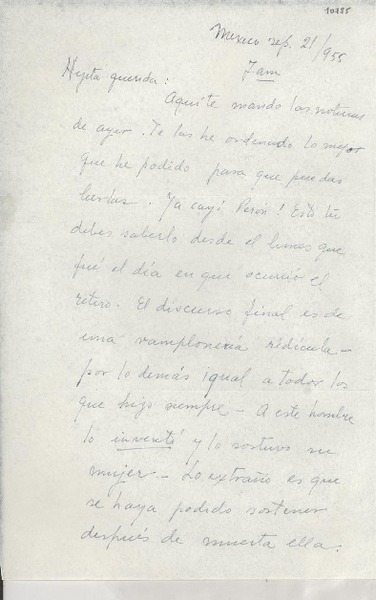 10255
Mexico sep. 21/955
7 am
Hijita querida:
Aquí te mando las noticias
de ayer. Te las he ordenado lo mejor
que he podido para que puedas
leerlas. Ya cayó Perón! Esto tú
debes saberlo desde el lunes que
fué el día en que ocurrió el
retiro. El discurso final es de
una ramplonería rídicula -
por lo demás igual a todos los
que hizo siempre - A este hombre
lo inventó y lo sostuvo su
mujer - Lo extraño es que
se haya podido sostener
después de muerta ella.